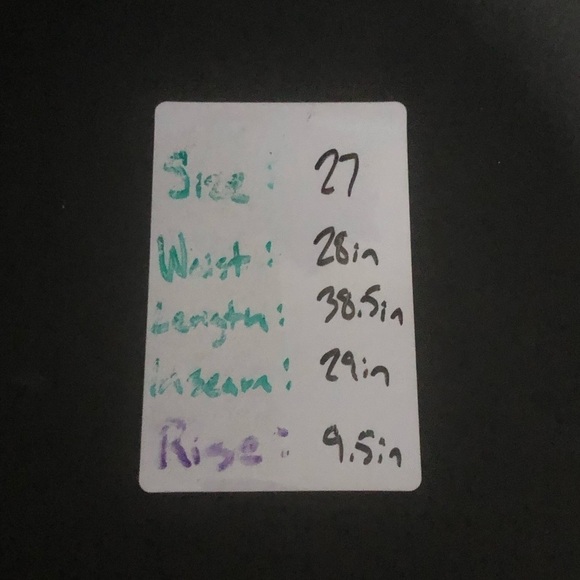 Size: 27
Waist: 28in
Length: 38.5in
Inseam: 29in
Rise: 9.5in